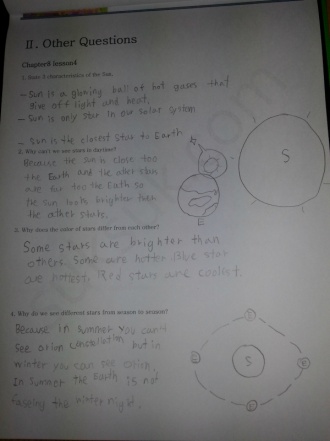 II. Other Questions
Chapter8 lesson4
1. State 3 characteristics of the Sun.
- Sun is a glowing ball of hot gases that
give off light and heat.
- Sun is only star in our solar system
- Sun is the closest star to Earth
2. Why can't we see stars in daytime?
Because the sun is close too
the Earth and the other stars
are far too the Earth so
the sun looks brighter than
the other stars.
M
S
E
3. Why does the color of stars differ from each other?
Some stars are brighter than
others. Some are hotter. Blue star
are hottest, Red stars are coolest.
4. Why do we see different stars from season to season?
Because in summer you can't
see orion constellation but in
winter you can see orion.
In summer the Earth is not
the winter night.
E
E
S
E
E